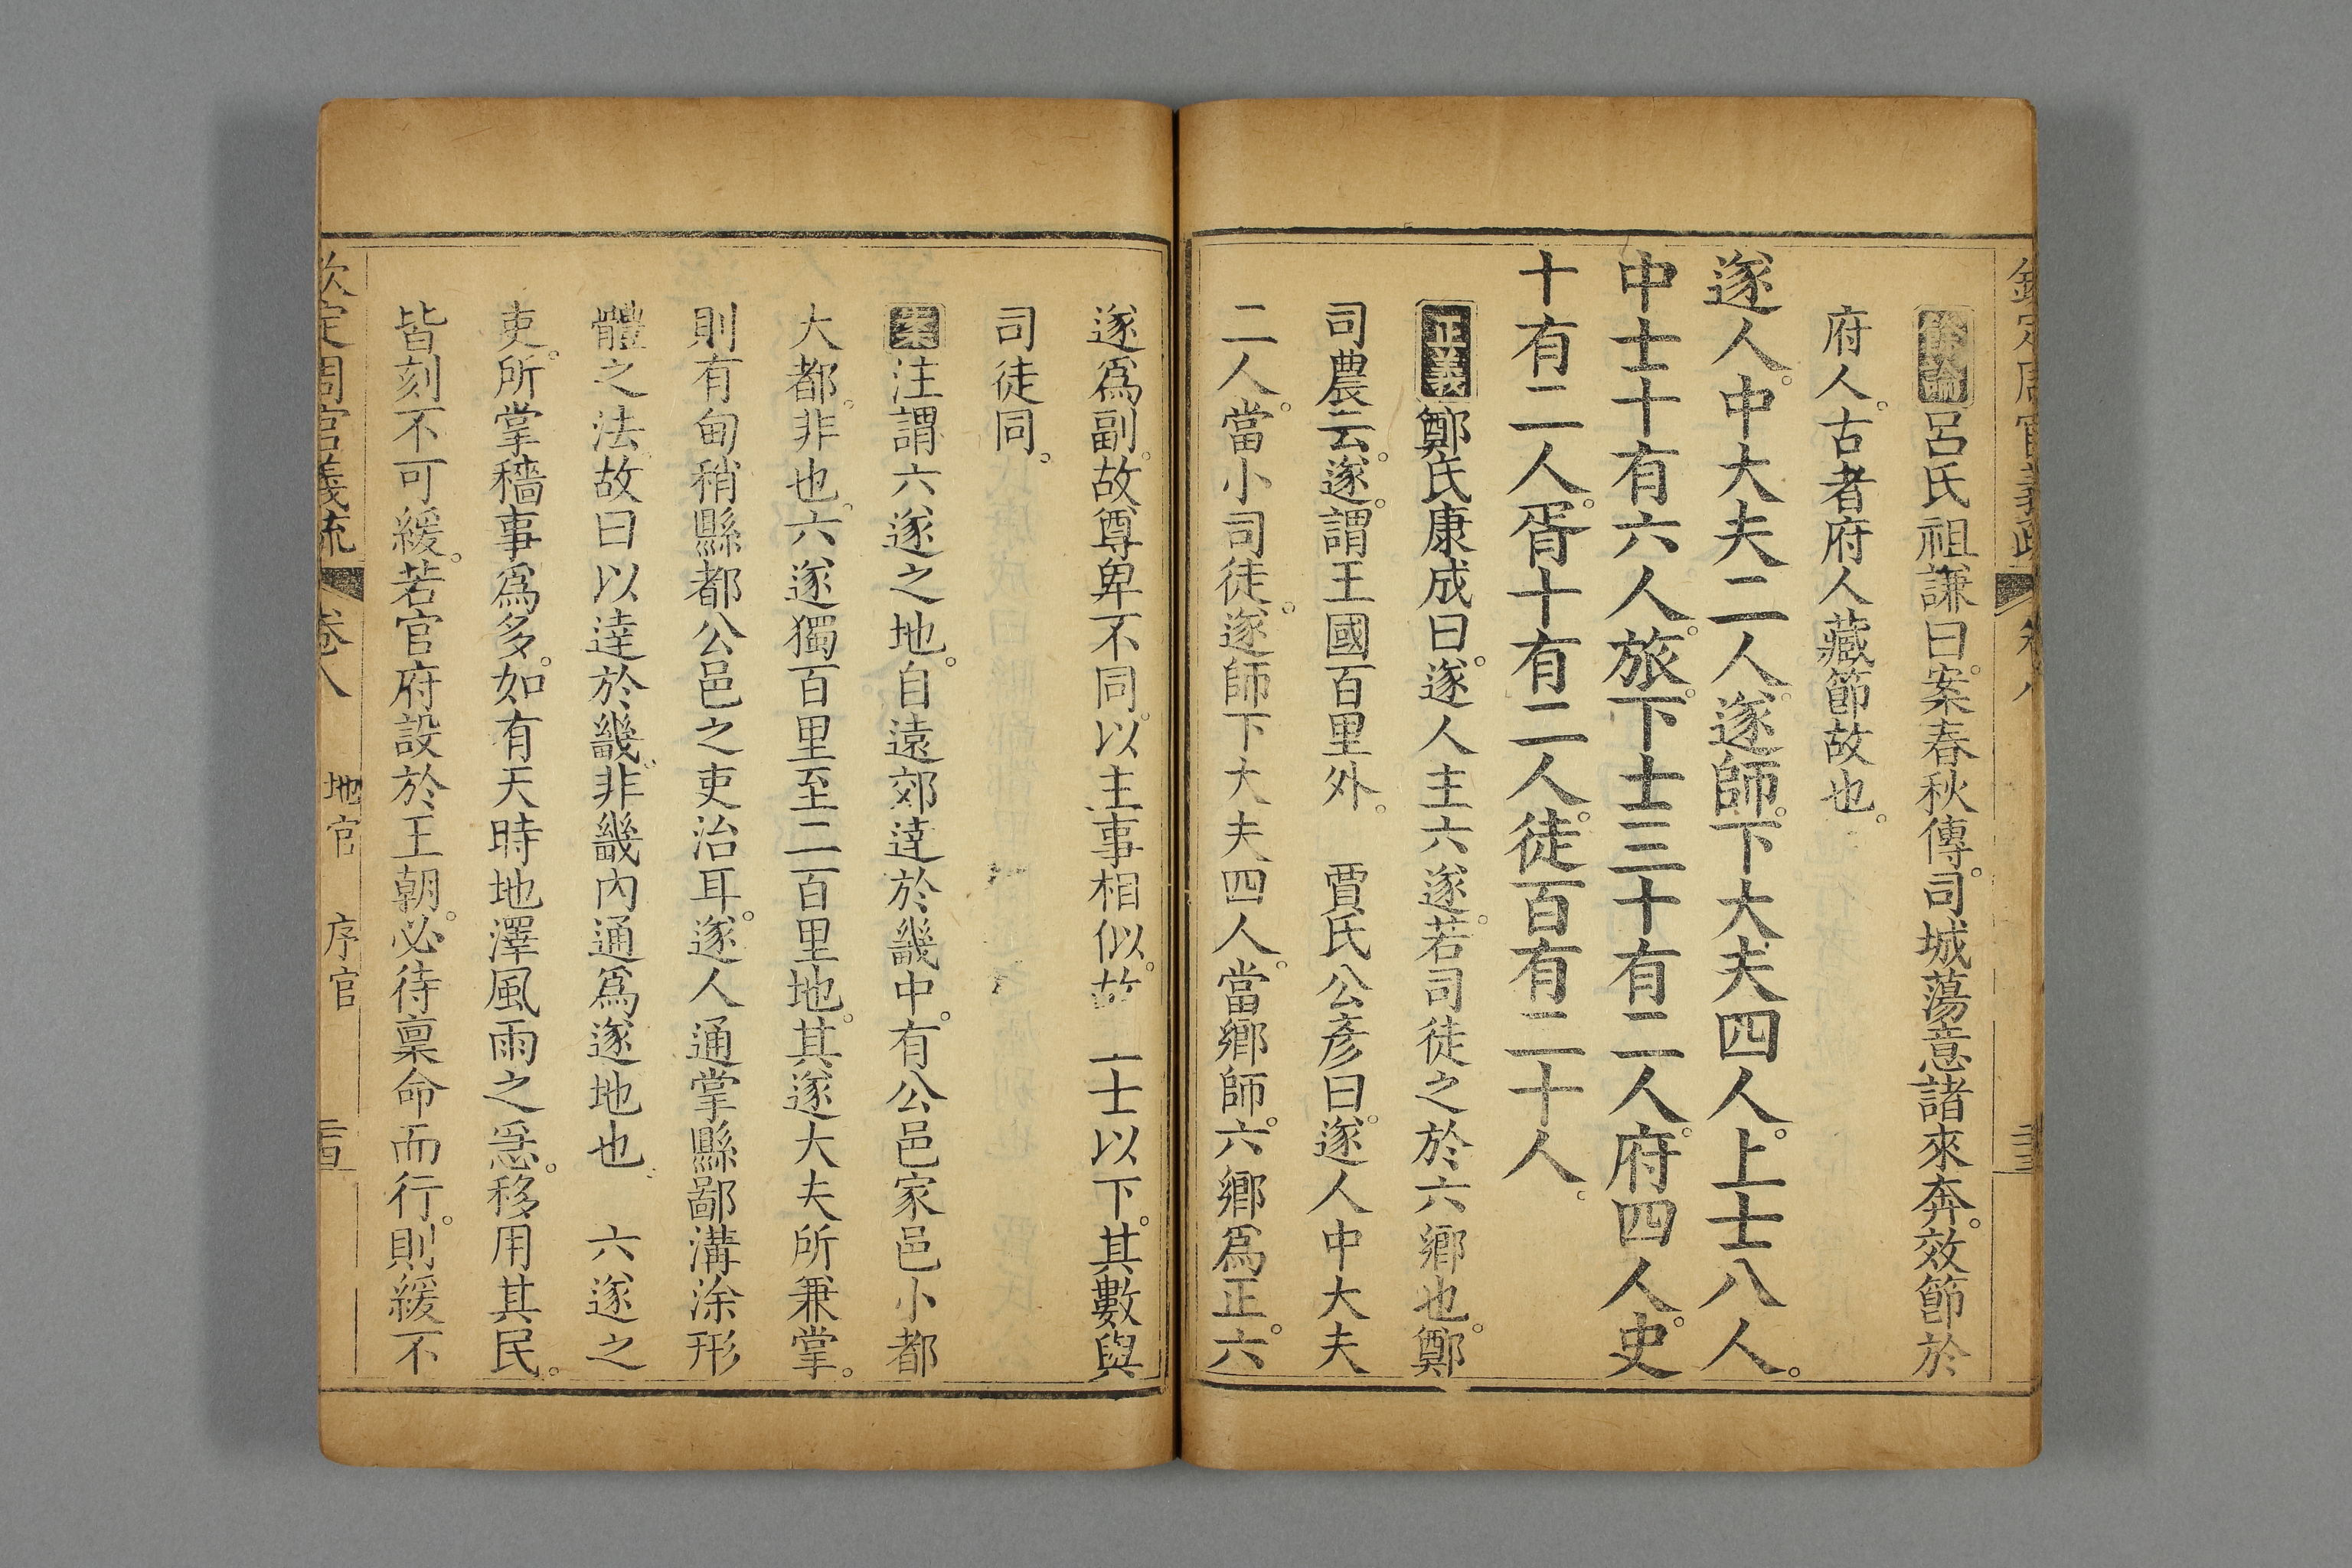 欽定周官義疏 卷八
餘論呂氏祖謙曰。案春秋傳。司城蕩意諸來奔。效節於
府人。古者府人藏節故也。
遂人。中大夫二人。遂師。下大夫四人。上士八人。
中士十有六人。旅。下士三十有二人。府四人。史
十有二人。胥十有二人。徒百有二十人。
正義鄭氏康成曰。遂人主六遂。若司徒之於六鄉也。鄭
司農云。遂。謂王國百里外。 賈氏公彥曰。遂人中大夫
二人。當小司徒。遂師下大夫四人。當鄉師。六鄉爲正。六
遂爲副。故尊卑不同。以主事相似。故 士以下。其數與
司徒同。
案注謂六遂之地。自遠郊達於畿中。有公邑家邑小都
大都。非也。六遂獨百里至二百里地。其遂大夫所兼掌。
則有甸稍縣都公邑之吏治耳。遂人通掌縣鄙溝涂形
體之法。故曰以達於畿。非畿內通爲遂地也。 六遂之
吏。所掌穡事爲多。如有天時地澤風雨之急。移用其民。
皆刻不可緩。若官府設於王朝。必待稟命而行。則緩不
欽定周官義疏 卷八 地官 序官